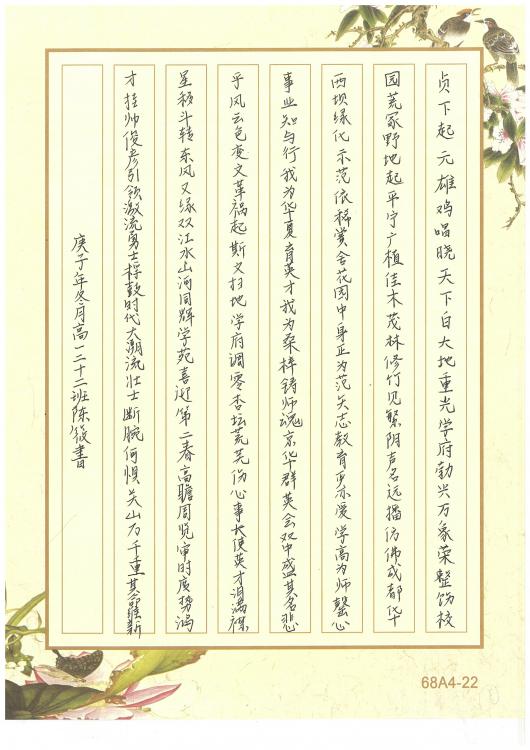 贞下起元雄鸡唱晓天下白大地重光学府勃兴万象荣整饬校
园荒冢野地起平宁广植佳木茂林修竹见繁阴声名远播仿佛成都华
西坝绿化示范依稀赏舍花园中身正为范矢志教育平添爱学高为师馨心
事业知与行我为华夏育英才我为桑梓铸师魂京华群英会双中盛其名悲
乎风云色变文革祸起斯文扫地学府调零杏坛荒芜伤心事长使英才泪满襟
星移斗转东风又缘双江水山河同辉学苑喜迎第二春高瞻周览审时度势鸿
才挂帅俊彦引领激流勇士桴鼓时代大潮流壮士断腕何惧关山万千重其
庚子年冬月高一二十二班陈筱书
68A4-22